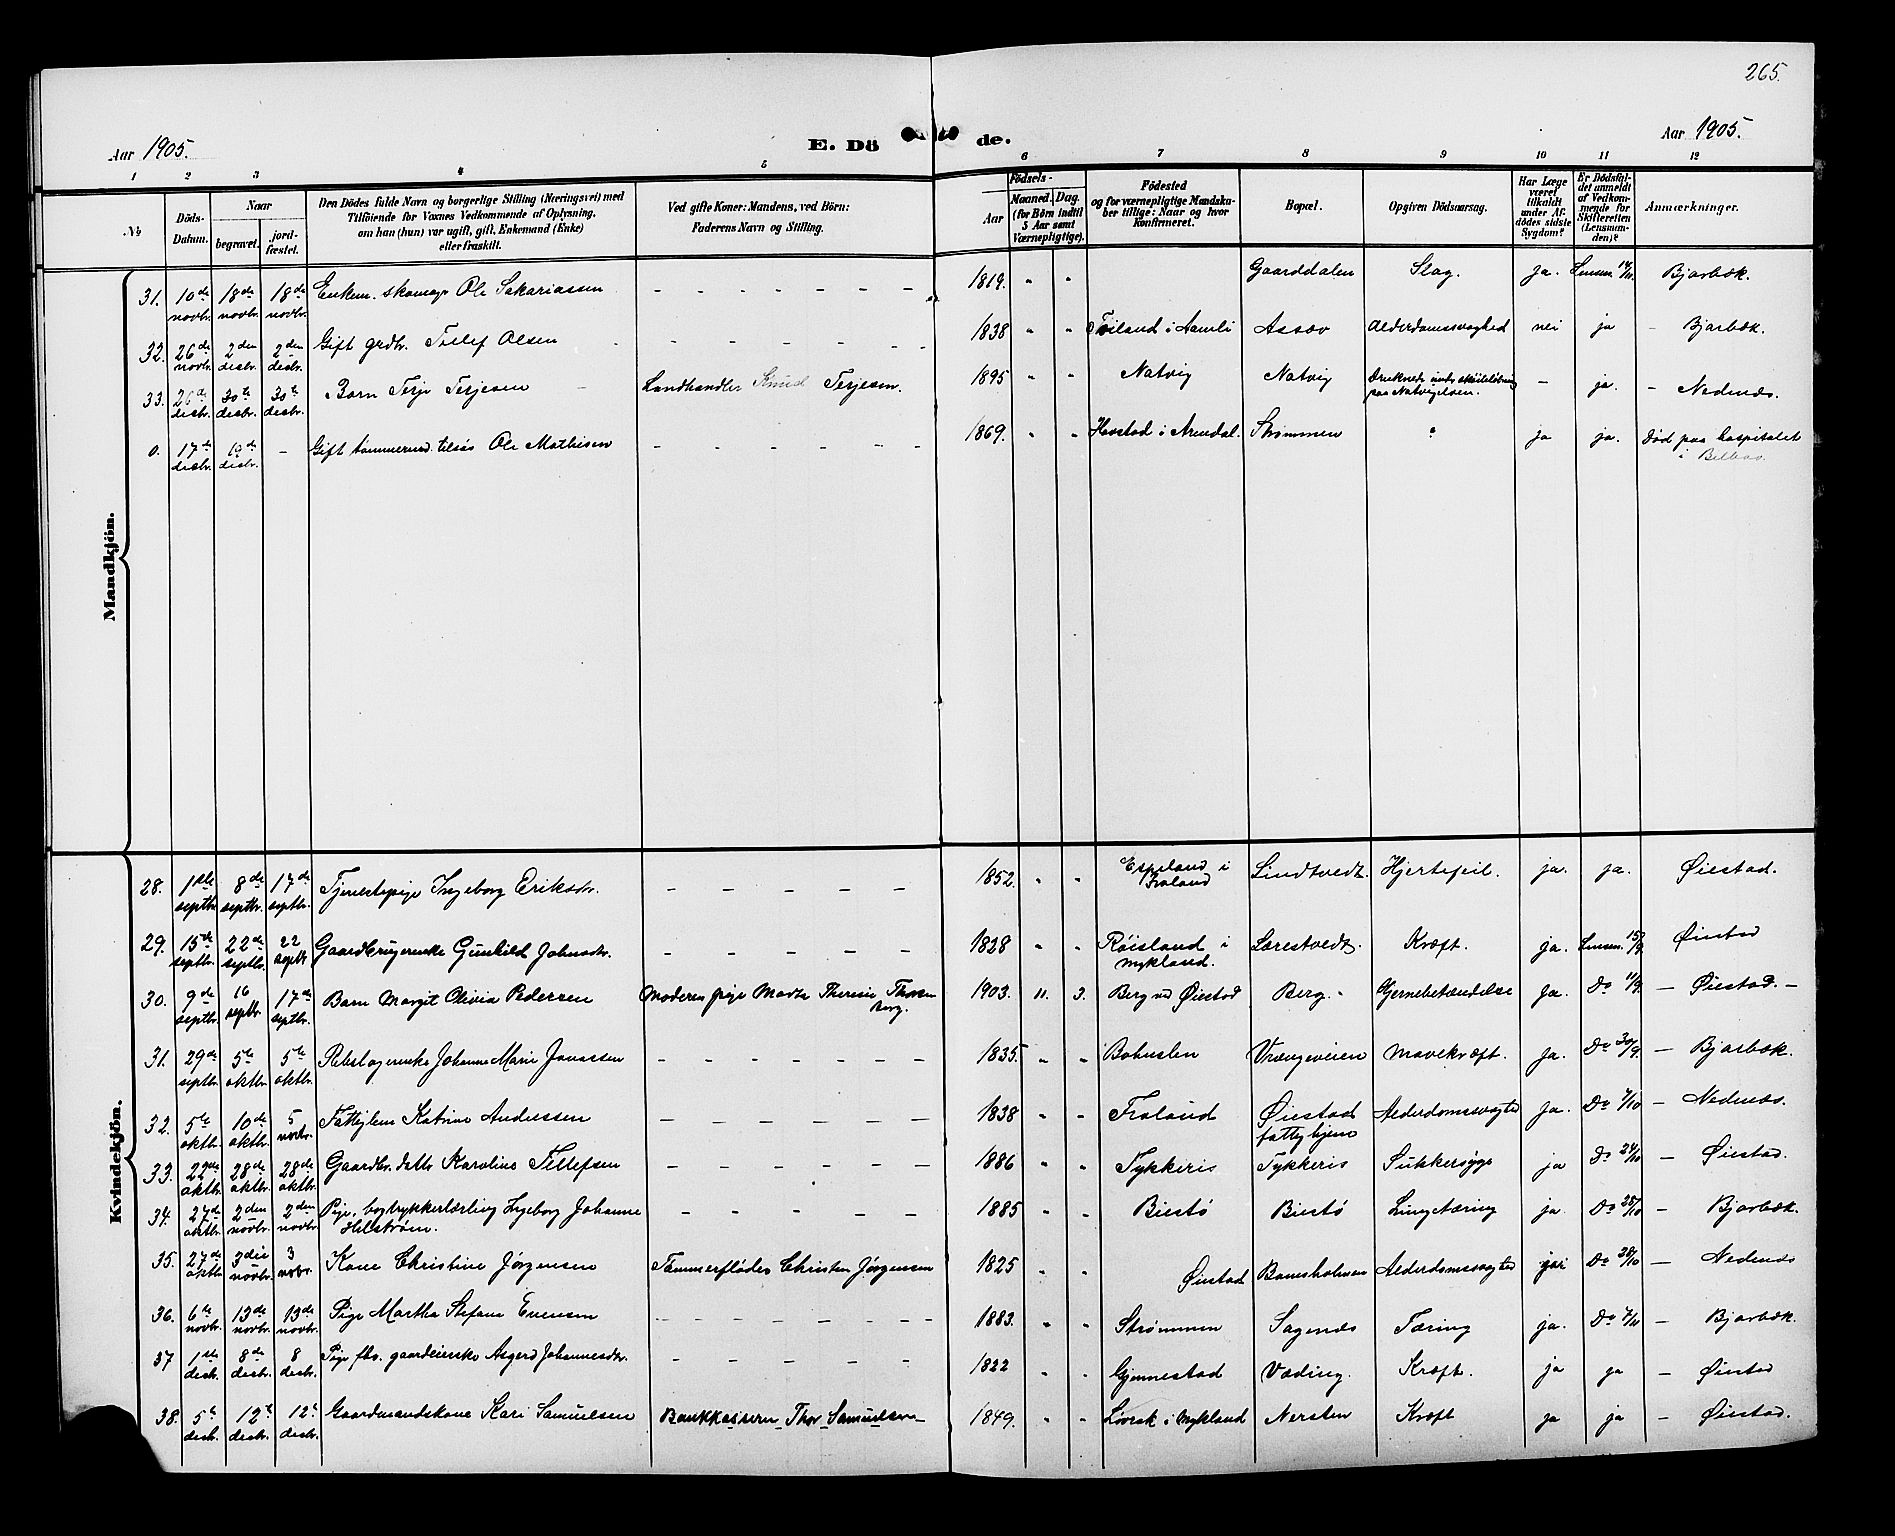 265.
Aar 1905.
E. Dö de.
Aar 1905.
1 2 3 4 5 6 7 8 9 10 11 12
№
Döds-Datum.
Naar
begravet.
jord-fæstet.
Den Dödes fulde Navn og borgerlige Stilling (Næringsvei) med
Tilföiende for Voxnes Vedkommende af Oplysning,
om han (hun) var ugift, gift, Enkemand (Enke)
eller fraskilt.
Ved gifte Koner: Mandens, ved Börn:
Faderens Navn og Stilling.
Födsels-
Aar
Maaned. Dag.
(for Börn indtil
5 Aar samt
Værnepligtige).
Födested
og for værnepligtige Mandska-
ber tillige: Naar og hvor
Konfirmeret.
Bopæl.
Opgiven Dödsaarsag.
Har Læge
været
tilkaldt
under Af-
dödes sidste
Sygdom?
Er Dödsfal-
det anmeldt
af Vedkom-
mende for
Skifteretten
(Lensman-
den)?
Anmærkninger.
Mandkjön.
31. 10de novbr. 18de novbr. 18de novbr. Enkem. skomager Ole Sakariassen – – – – – – 1819. " " Gaarddalen Slag. ja. Lensm. 14/11. Bjorbæk.
32. 26de novbr. 2den desbr. 2den desbr. Gift grdbr. Tellef Olsen – – – – – – 1838 " " i Aamli Assev Alderdomssvaghed nei ja – Bjorbæk.
33. 26de desbr. 30te desbr. 30te desbr. Barn Terje Terjesen – Landhandler Knud Terjesen. 1895 " " Natvig Natvig druknede under skøiteløbning paa Natvigelven. – ja. – Nedenes.
0. 17de desbr. desbr. – Gift tømmermd. tilsøs Ole Mathisen – – – – – – 1869. " " i Arendal. Strømmen ? ja ja. Død paa hospitalet
i Bilbao.
Kvindekjön.
28. 1ste septbr. 8de septbr. 17de septbr. Tjenestepige Ingeborg Eriksdtr. – – – – – – 1852. " " Espeland i Froland Lindtvedt. Hjertefeil. ja. ja. Øiestad.
29. 15de septbr. 22de septbr. 22 septbr Gaardbrugerenke Gunhild Johnsdtr. – – – – – – 1828 " " Røisland i Mykland. Lærestvedt. Kræft. ja. Lensm. 15/9. Øiestad
30. 9de septbr. 16 septbr. 17de septbr. Barn Margit Olivia Pedersen Moderen pige Marte Theresie Berg. 1903. 11. 3. Berg ved Øiestad Berg. Hjernebetændelse ja. Do 11/9. – Øiestad. –
31. 29de septbr. 5te oktbr. 5te oktbr. Rebslagerenke Johanne Marie Jonassen – – – – – – 1835. " " Bohuslen Vrængeveien Mavekræft. ja. Do 30/9. – Bjorbæk.
32. 5te oktbr. 10de oktbr. 5 novbr. Fattiglem Katrine Anderssen – – – – – – 1838 " " Froland Øiestad fattighjem Alderdomssvaghed ja. Do 7/10 – Nedenes.
33. 22de oktbr. 28de oktbr. 28de oktbr. Gaardbr. dattr Karoline Tellefsen – – – – – – 1886 " " Tykkeris Tykkeris Sukkersyge ja Do 24/10 – Øiestad.
34. 27de oktbr. 2den novbr. 2den novbr. Pige, bogtrykkerlærling Ingeborg Johanne
Helstrøm. – – – – – – 1885 " " Biestø Biestø Lungetæring ja. Do 28/10 – Bjorbæk.
35. 27de oktbr. 3die novbr. 3 novbr. Kone Christine Jørgensen Tømmerfløder Christen Jørgensen 1825 " " Øiestad Bomsholmen Alderdomssvaghed Do 28/10 – Nedenes
36. 6te novbr. 13de novbr. 13de novbr. Pige Martha Stefane Evensen – – – – – – 1883. " " Strømmen Sagenes Tæring ja. Do 7/11 – Bjorbæk.
37 1ste desbr. 8de desbr. 8 desbr. Pige fhv. gaardeierske Asgerd Johannesdtr. – – – – – – 1822 " " Gjennestad Væding. Kræft. ja ja – Øiestad
38. 5te desbr. 12te desbr. 12te desbr. Gaardmandskone Kari Samuelsen Bankkasserer Thor Samuelsen 1849. " " i Mykland Nersten Kræft ja ja – Øiestad.